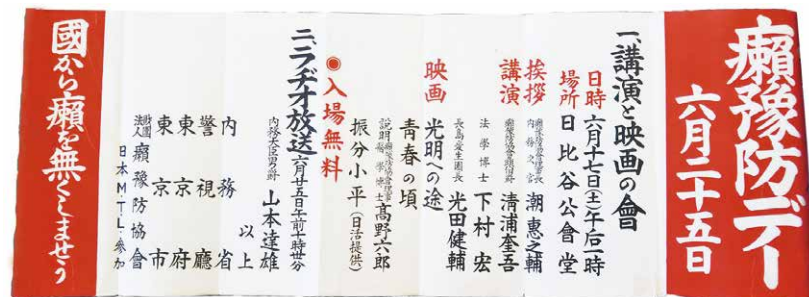 癩豫防デー
六月二十五日
一、講演と映画の會
日時 六月十七日(土)午后一時
場所 日比谷公會堂
挨拶 癩豫防協會理事長
内務次官 潮惠之輔
講演 癩豫防協會會頭伯爵 清浦奎吾
法學博士 下村宏
長島愛生園長 光田健輔
映画 光明への途
説明癩豫防協會理事
醫學博士 高野六郎
青春の頃
振分小平(日活提供)
◉入場無料
二、ラヂオ放送 六月廿五日午前十時廿分
内務大臣男爵 山本達雄
以上
内務省
警視廳
東京府
東京市
財團法人 癩豫防協會
日本M.T.L.参加
國から癩を無くしませう